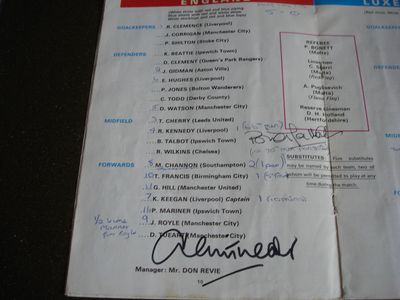 ENGLAND
LUXE
(White shirts with red and blue piping
5 - 0
GOALKEEPERS
R. CLEMENCE (Liverpool)
J. CORRIGAN (Manchester City)
P. SHILTON (Stoke City)
DEFENDERS
K. BEATTIE (Ipswich Town)
D. CLEMENT (Queen's Park Rangers)
J. GIDMAN (Aston Villa)
E. HUGHES (Liverpool)
P. JONES (Bolton Wanderers)
C. TODD (Derby County)
D. WATSON (Manchester City)
MIDFIELD
T. CHERRY (Leeds United)
R. KENNEDY (Liverpool) 1
B. TALBOT (Ipswich Town)
R. WILKINS (Chelsea)
FORWARDS
M. CHANNON (Southampton) 2 (1 pen)
T. FRANCIS (Birmingham City) 1
G. HILL (Manchester United)
7 K. KEEGAN (Liverpool) Captain 1
P. MARINER (Ipswich Town)
J. ROYLE (Manchester City)
D. TUEART (Manchester City)
Manager: Mr. DON REVIE
10
REFEREE
P. BONETT
(Malta)
Linesmen
(Malta)
(Red Flag)
A. Puglisevich
(Malta)
Reserve Linesman
D. H. Rolland
(Hertfordshire)
SUBSTITUTES Five substitutes
may be named by each team, two of
whom will be permitted to play at any
time during the match.